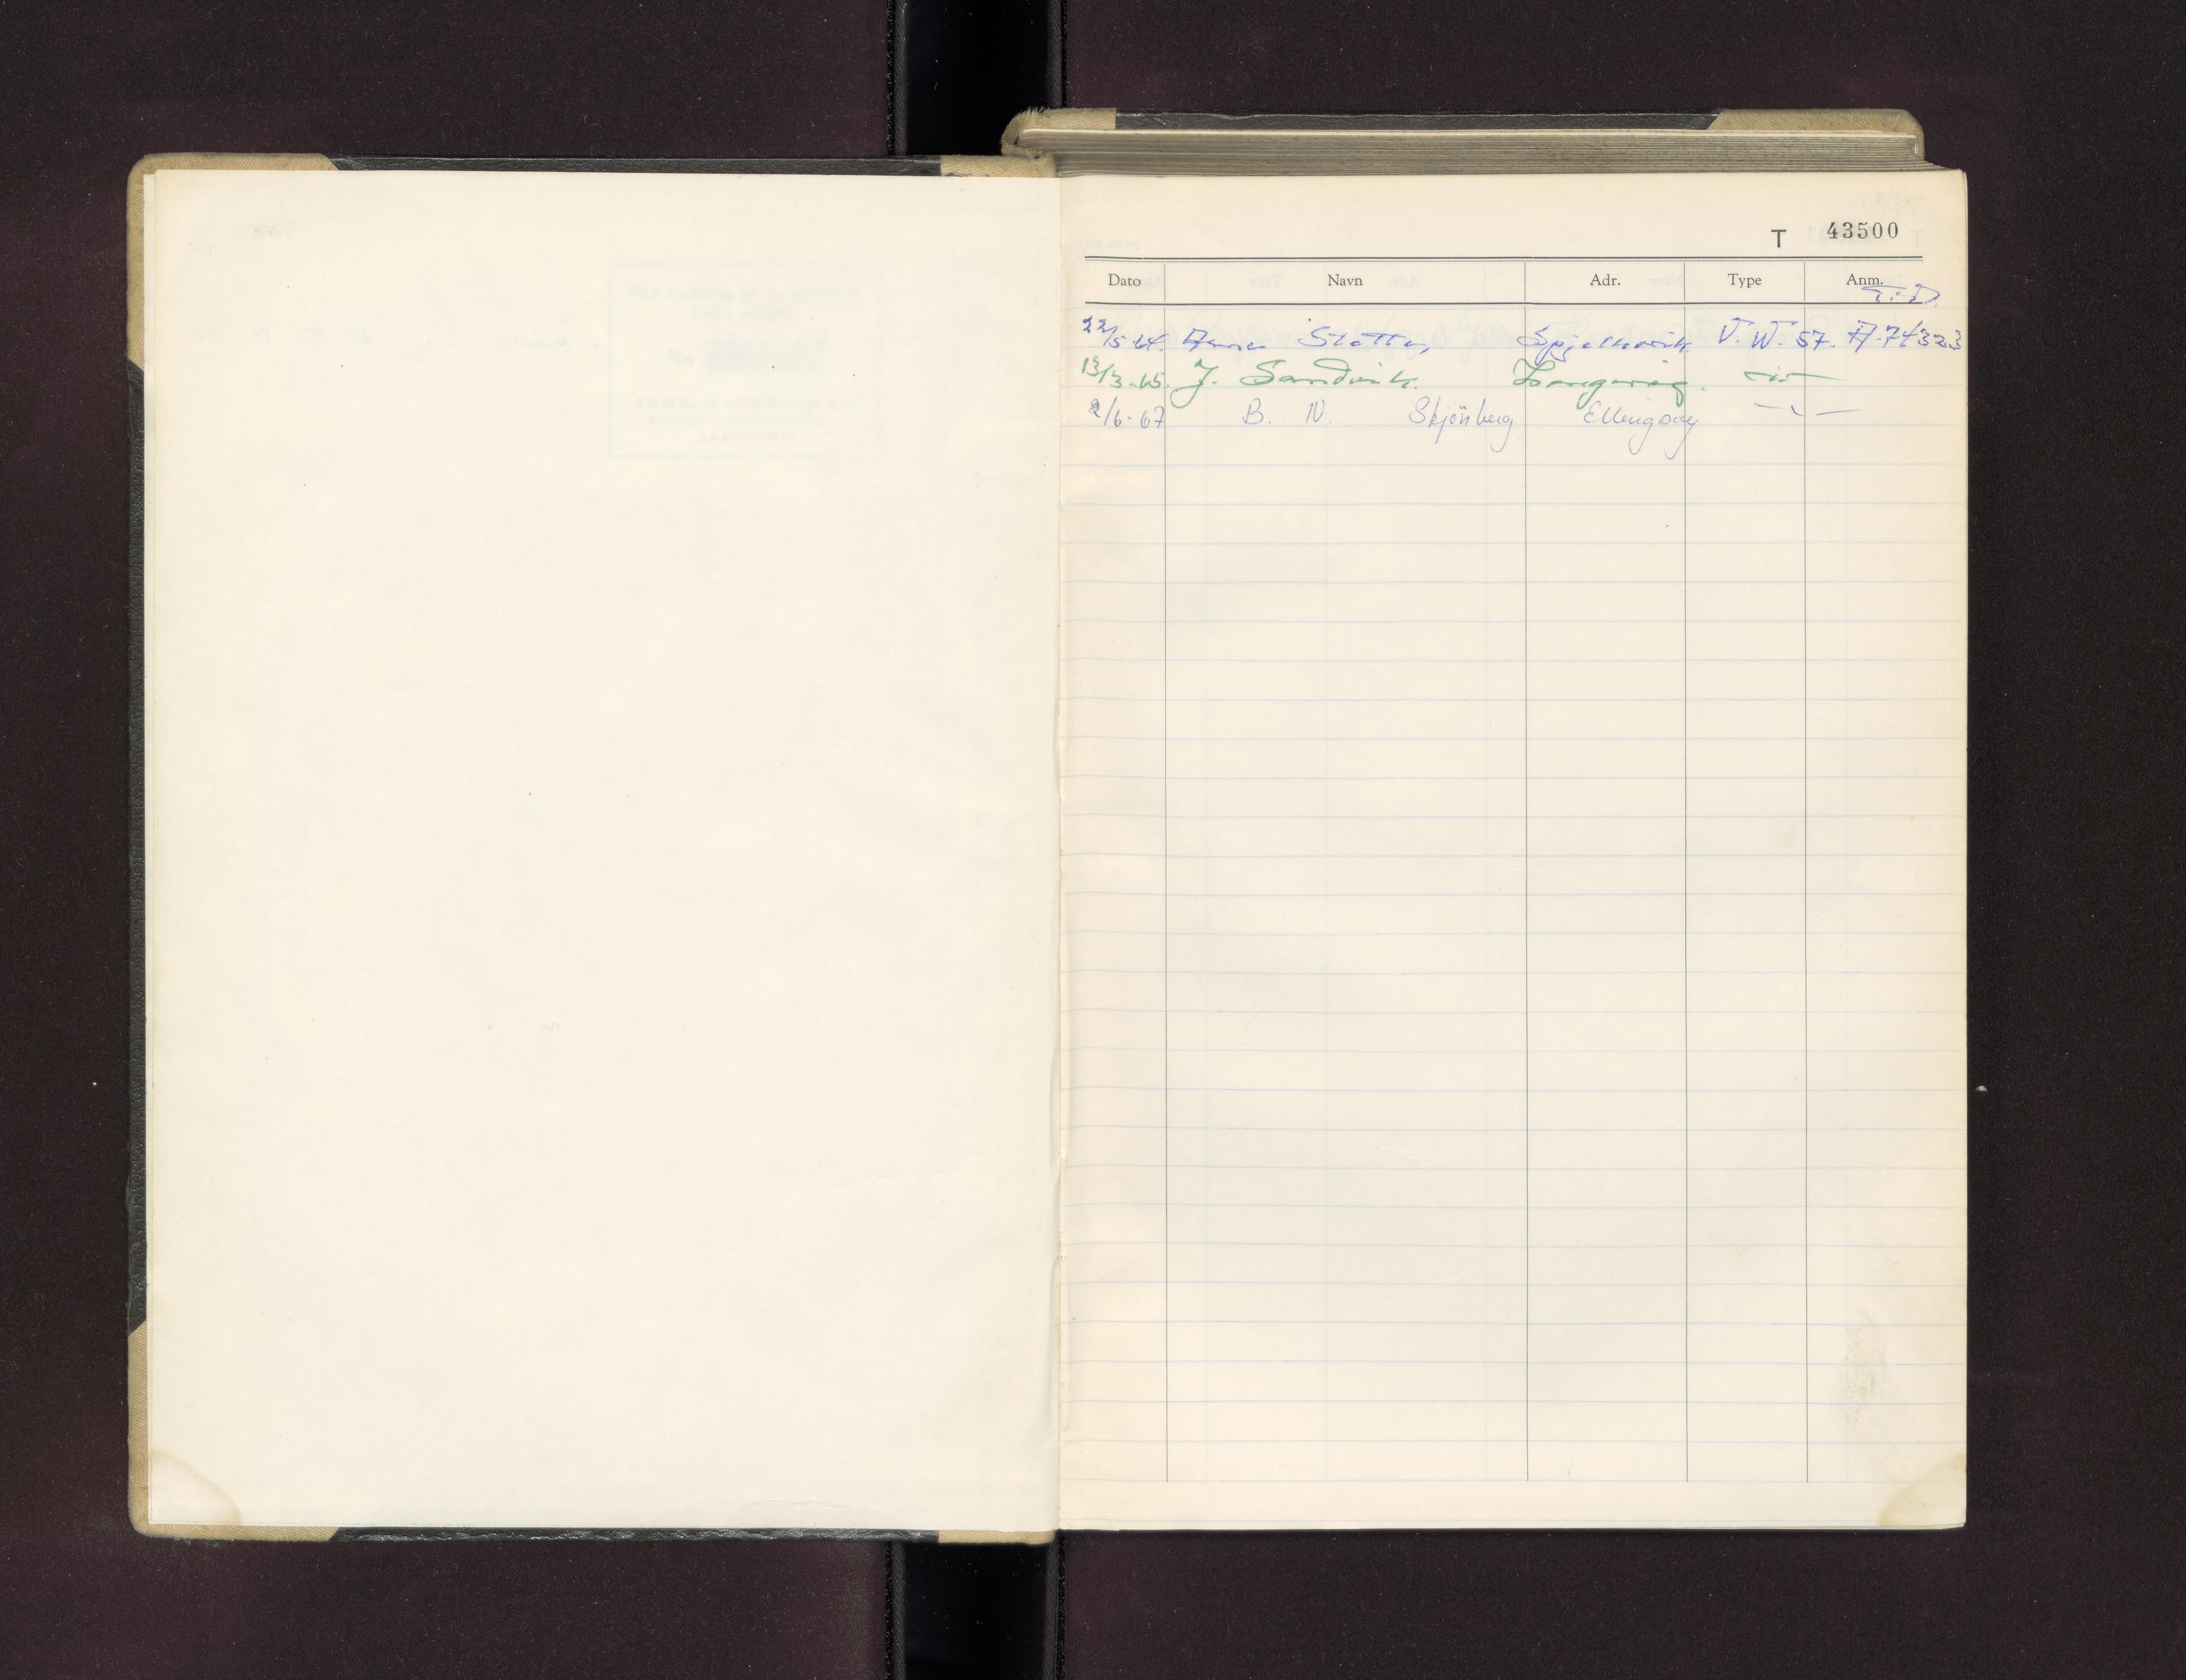 T 43500
Dato Navn Adr. Type Anm.
T.D.
22/5-64. Slotten, Spjelkavik V.W. 57. A-74323
13/3-65. J. Sandvik. Langevåg.
2/6-67 B. N. Skjönberg Ellingsøy